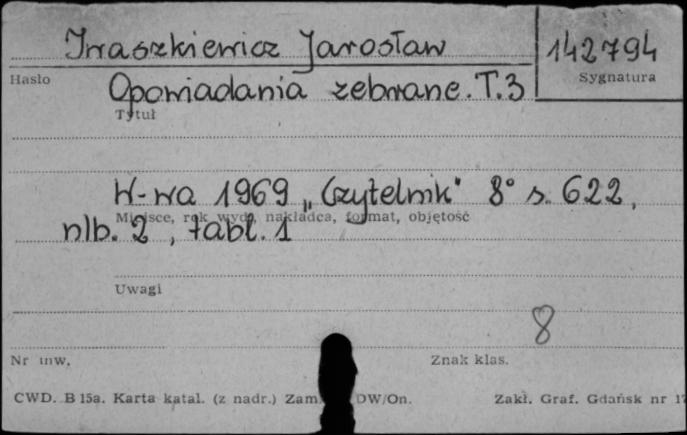 Iwaszkiewicz Jarosław 142794
Hasło Sygnatura
Opowiadania zebrane. T.3
Tytuł
W-wa 1969 „Czytelnik" 8° s. 622,
Miejsce, rok wyd., nakładca, format, objętość
nlb. 2, tabl. 1
Uwagi
8
Nr inw, Znak klas.
CWD. B 15a. Karta katal. (z nadr.) Zam. DW/On. Zakł. Graf. Gdańsk nr